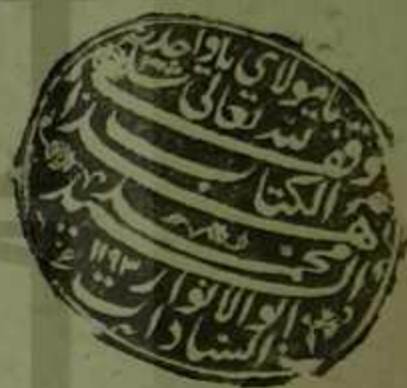 يامولاي ياواحد
لله تعالى
وقف هذا
الكتاب
محمد
ابو الانوار ١١٩٣
السادات